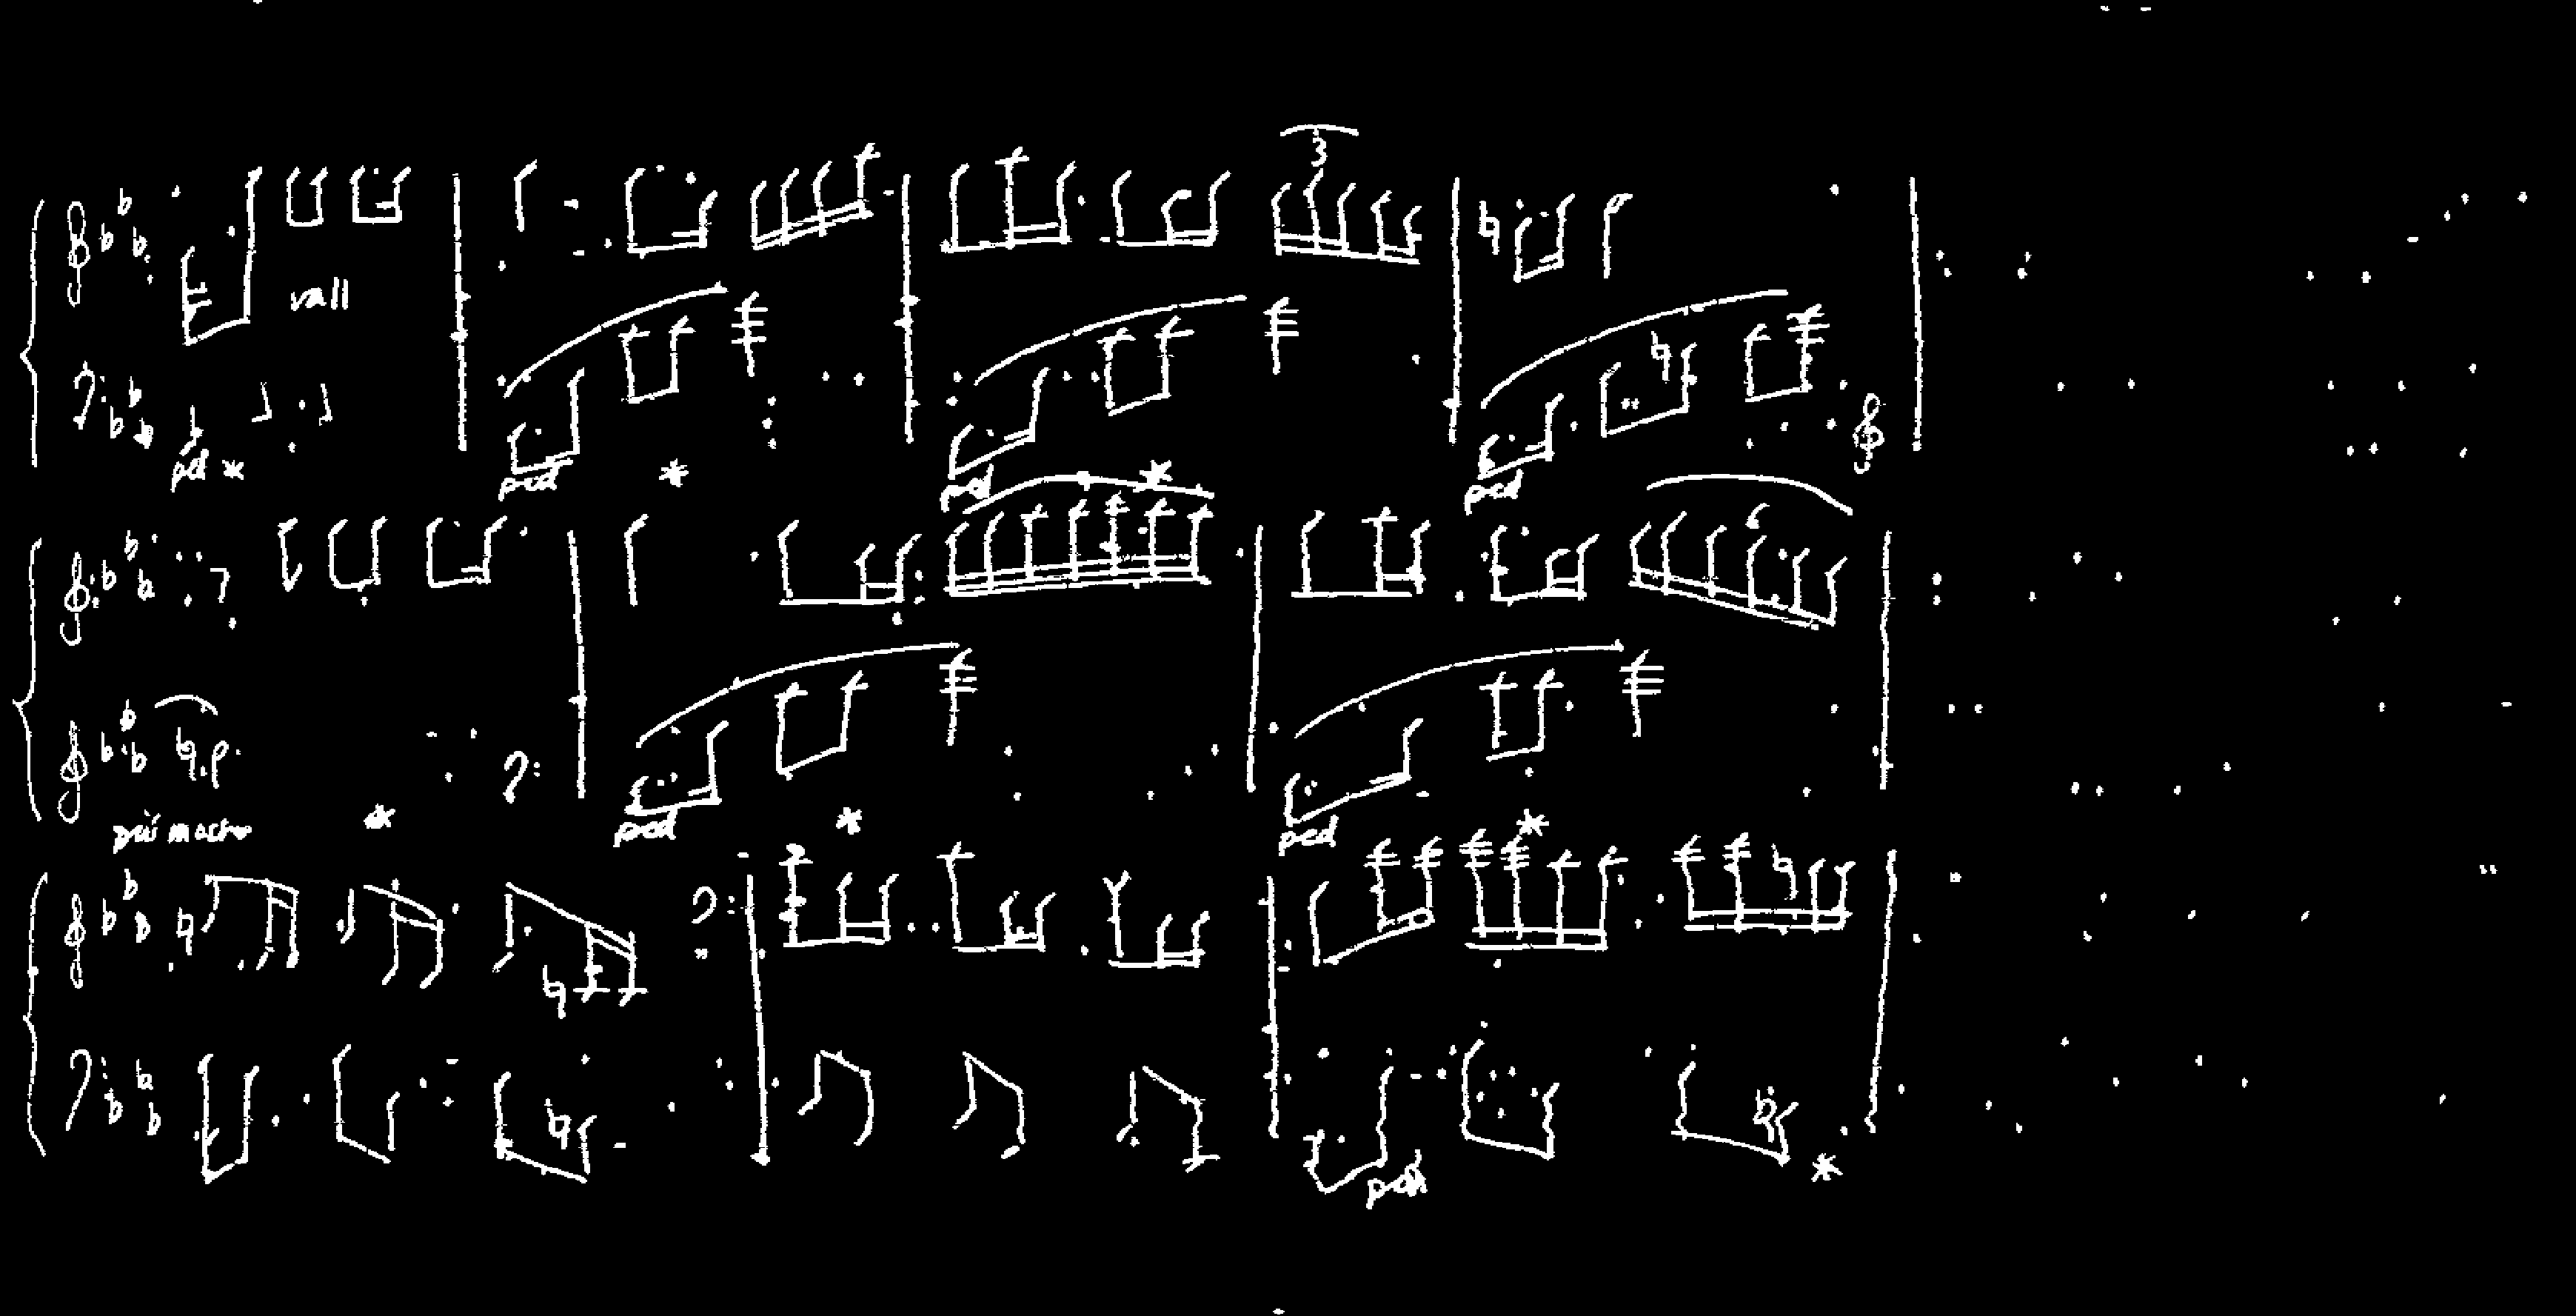 3
rall
ped *
ped * ped * ped
6
più mosso * ped * ped *
ped *